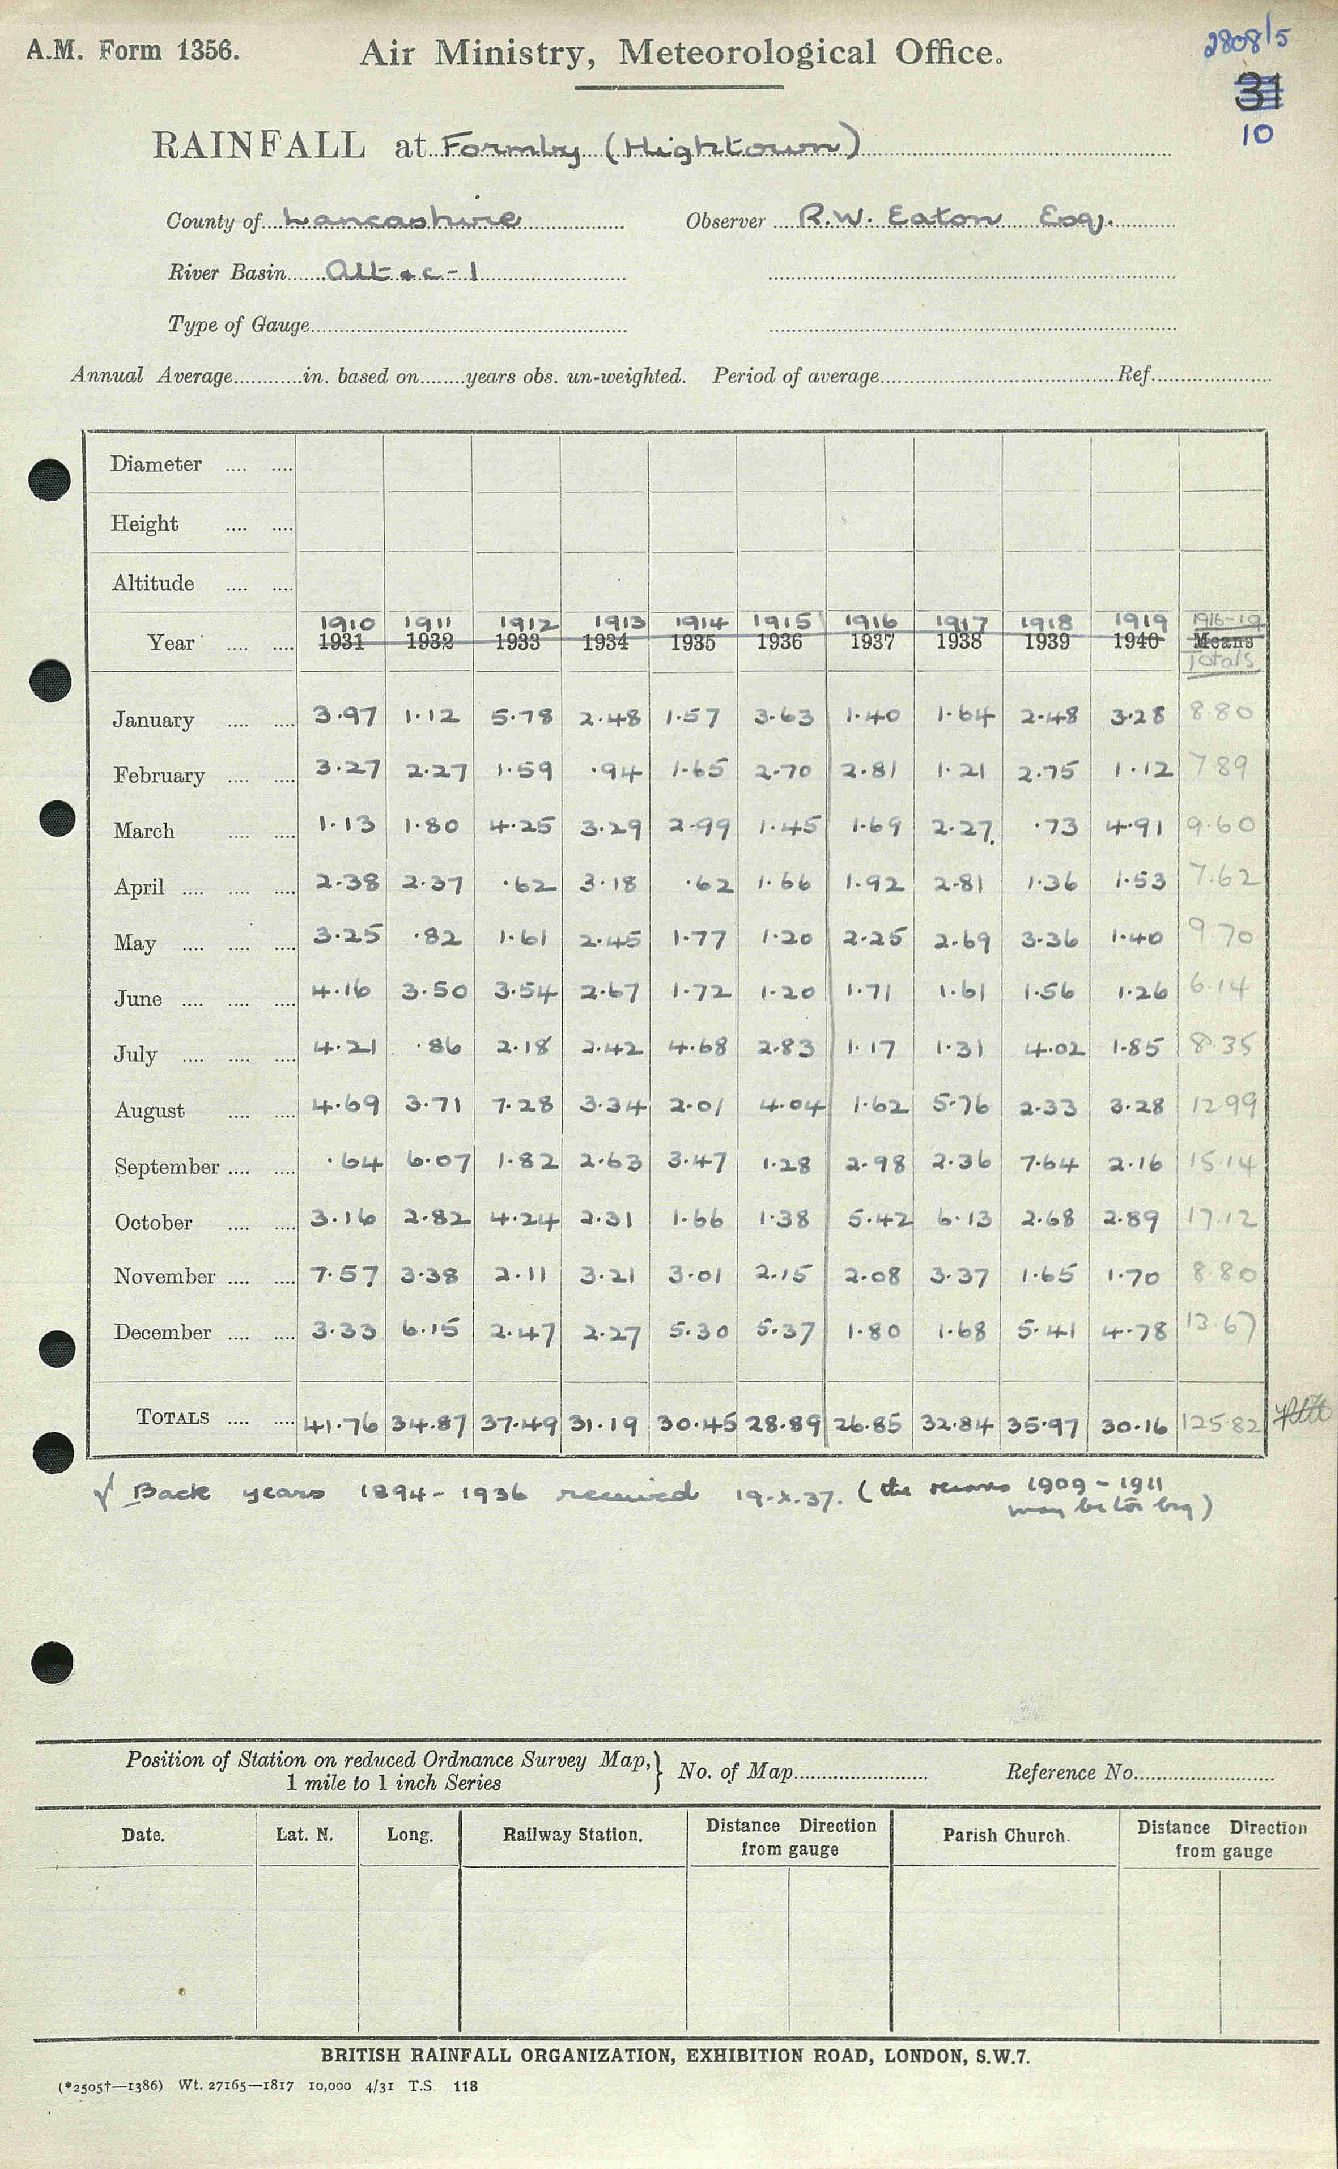 A.M. Form 1356.
Air Ministry, Meteorological Office.
2808/5
31
10
RAINFALL at Formby (Hightown)
County of Lancashire Observer R.W. Eaton Esq.
River Basin Alt &c - 1
Type of Gauge
Annual Average in. based on years obs. un-weighted. Period of average Ref.
Diameter
Height
Altitude
1910 1911 1912 1913 1914 1915 1916 1917 1918 1919 1916-19
Year 1931 1932 1933 1934 1935 1936 1937 1938 1939 1940 Means
Totals
January 3.97 1.12 5.78 2.48 1.57 3.63 1.40 1.64 2.48 3.28 8.80
February 3.27 2.27 1.59 .94 1.65 2.70 2.81 1.21 2.75 1.12 7 89
March 1.13 1.80 4.25 3.29 2.99 1.45 1.69 2.27 .73 4.91 9.60
April 2.38 2.37 .62 3.18 .62 1.66 1.92 2.81 1.36 1.53 7.62
May 3.25 .82 1.61 2.45 1.77 1.20 2.25 2.69 3.36 1.40 9.70
June 4.16 3.50 3.54 2.67 1.72 1.20 1.71 1.61 1.56 1.26 6.14
July 4.21 .86 2.18 2.42 4.68 2.83 1.17 1.31 4.02 1.85 8.35
August 4.69 3.71 7.28 3.34 2.01 4.04 1.62 5.76 2.33 3.28 12 99
September .64 6.07 1.82 2.63 3.47 1.28 2.98 2.36 7.64 2.16 15.14
October 3.16 2.82 4.24 2.31 1.66 1.38 5.42 6.13 2.68 2.89 17.12
November 7.57 3.38 2.11 3.21 3.01 2.15 2.08 3.37 1.65 1.70 8.80
December 3.33 6.15 2.47 2.27 5.30 5.37 1.80 1.68 5.41 4.78 13.67
TOTALS 41.76 34.87 37.49 31.19 30.45 28.89 26.85 32.84 35.97 30.16 125.82
Back years 1894 - 1936 received 19.X.37. (the 1909 - 1911
may be too big)
Position of Station on reduced Ordnance Survey Map,
1 mile to 1 inch Series
No. of Map Reference No.
Date. Lat. N. Long. Railway Station. Distance Direction from gauge Parish Church. Distance Direction from gauge
BRITISH RAINFALL ORGANIZATION, EXHIBITION ROAD, LONDON, S.W.7.
(*2505†—1386) Wt. 27165—1817 10,000 4/31 T.S. 118